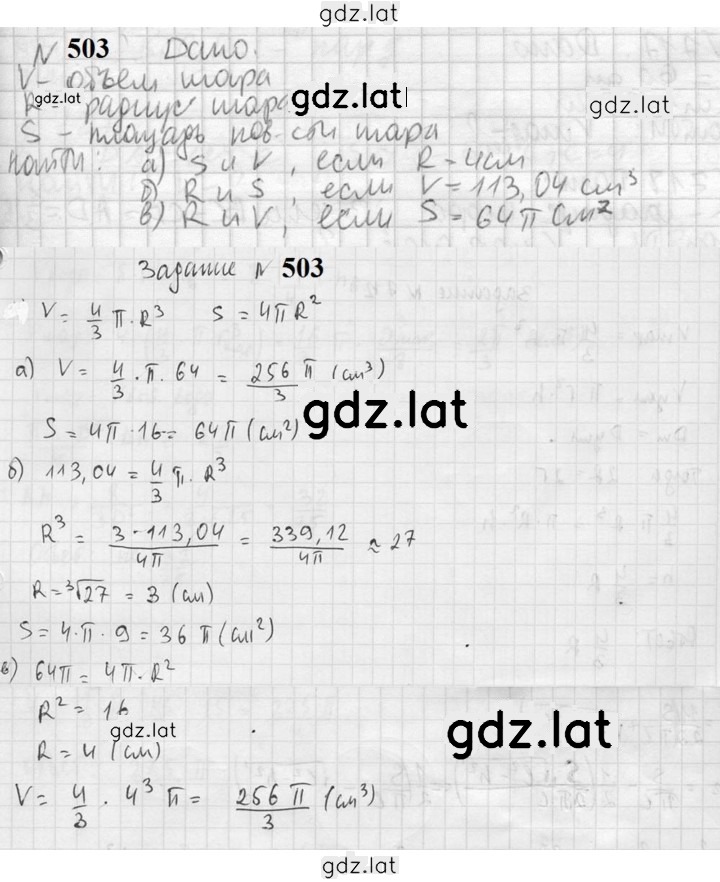 gdz.lat
N 503 Дано:
V - объем шара
gdz.lat
gdz.lat
R - радиус шара
S - площадь пов-сти шара
Найти: а) S и V, если R = 4см
б) R и S, если V = 113,04 см³
в) R и V, если S = 64π см²
Задание N 503
V = 4/3 π · R³ S = 4π R²
а) V = 4/3 · π · 64 = 256 π/3 (см³)
gdz.lat
S = 4π · 16 = 64π (см²)
б) 113,04 = 4/3 π · R³
R³ = 3 · 113,04/4π = 339,12/4π ≈ 27
R = ³√27 = 3 (см)
S = 4 · π · 9 = 36 π (см²)
в) 64π = 4π · R²
R² = 16
gdz.lat
gdz.lat
R = 4 (см)
V = 4/3 · 4³ π = 256 π/3 (см³)
gdz.lat